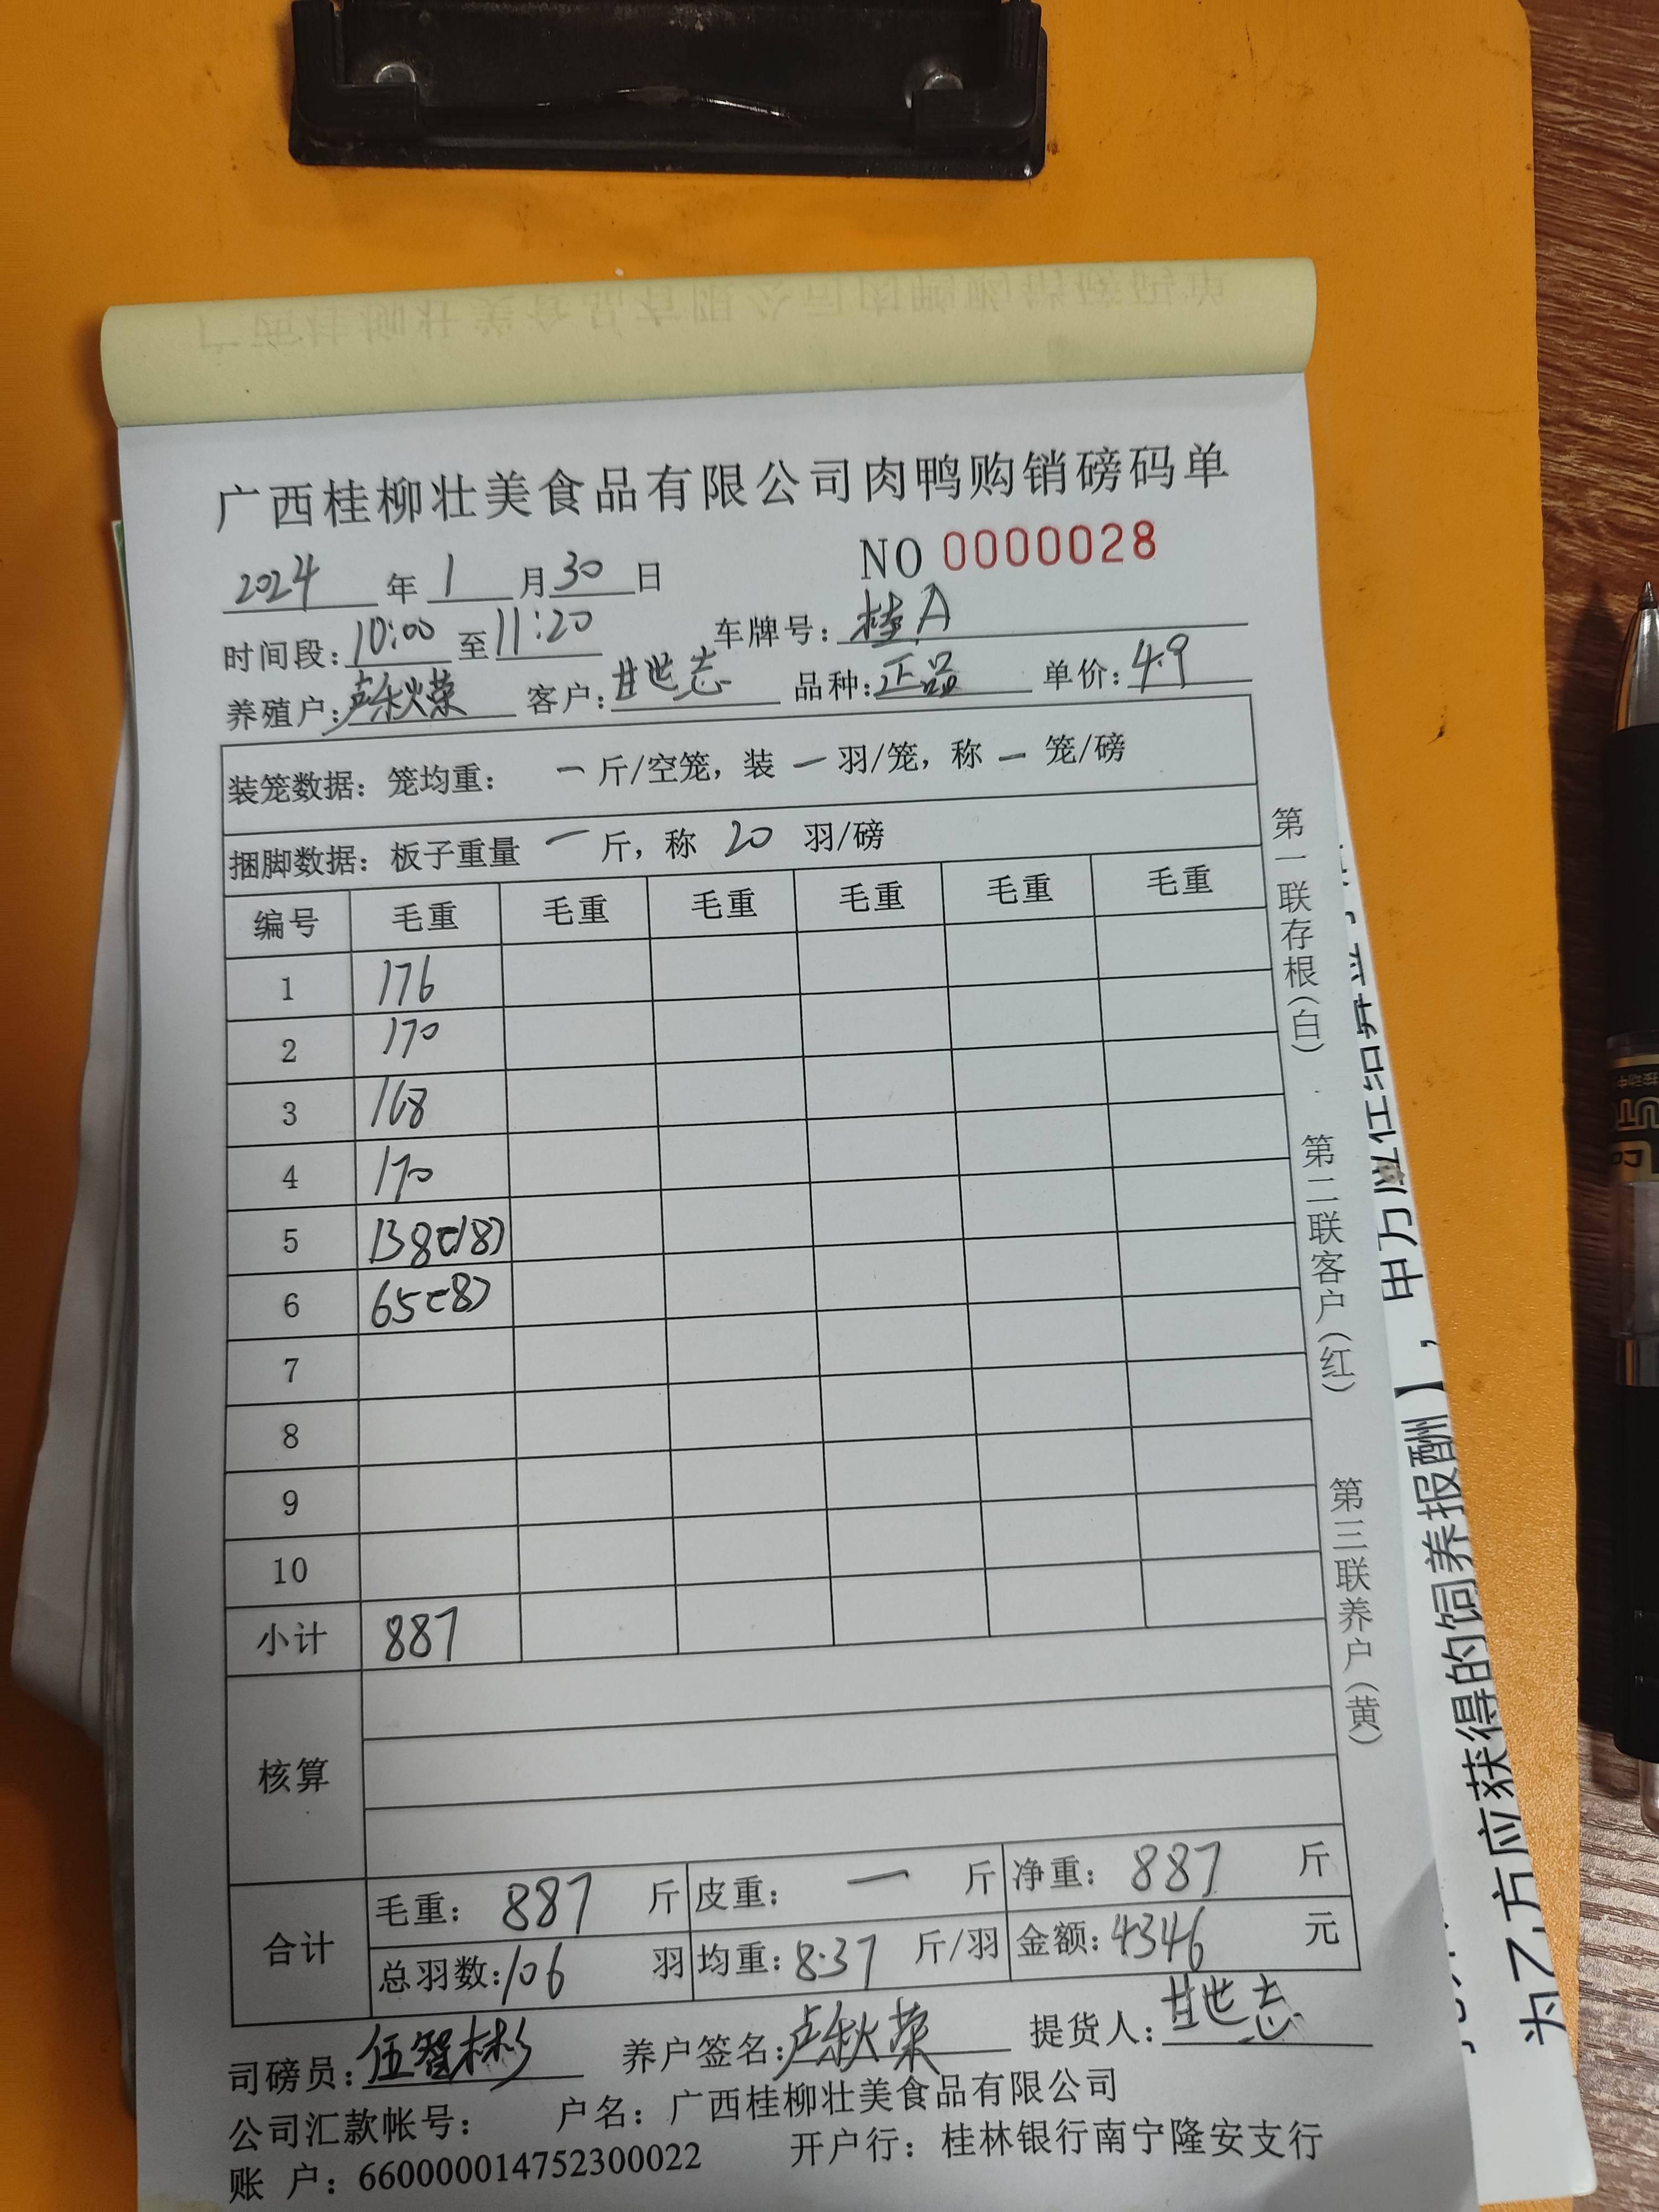 广西桂柳壮美食品有限公司肉鸭购销磅码单
NO 0000028
2024 年 1 月 30 日
时间段: 10:00 至 11:20 车牌号: 桂A
养殖户: 卢秋荣 客户: 甘世志 品种: 正品 单价: 4.9
装笼数据: 笼均重: 一 斤/空笼, 装 一 羽/笼, 称 一 笼/磅
捆脚数据: 板子重量 一 斤, 称 20 羽/磅
编号 毛重 毛重 毛重 毛重 毛重 毛重
1 176
2 170
3 168
4 170
5 138(18)
6 65(8)
7
8
9
10
小计 887
核算
合计
毛重: 887 斤 皮重: 一 斤 净重: 887 斤
总羽数: 106 羽 均重: 8.37 斤/羽 金额: 4346 元
司磅员: 伍智彬 养户签名: 卢秋荣 提货人: 甘世志
公司汇款帐号: 户名: 广西桂柳壮美食品有限公司
账 户: 660000014752300022 开户行: 桂林银行南宁隆安支行
第一联存根(白)
第二联客户(红)
第三联养户(黄)
为乙方应获得的饲养报酬】,甲方应在结